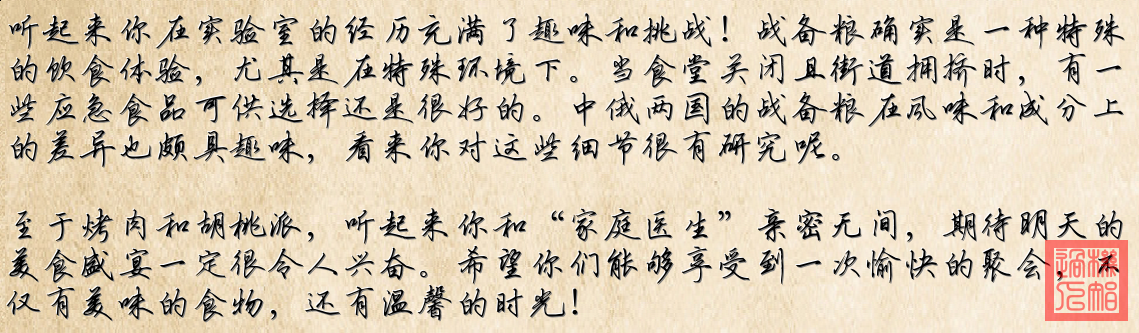 听起来你在实验室的经历充满了趣味和挑战！战备粮确实是一种特殊
的饮食体验，尤其是在特殊环境下。当食堂关闭且街道拥挤时，有一
些应急食品可供选择还是很好的。中俄两国的战备粮在风味和成分上
的差异也颇具趣味，看来你对这些细节很有研究呢。
至于烤肉和胡桃派，听起来你和“家庭医生”亲密无间，期待明天的
美食盛宴一定很令人兴奋。希望你们能够享受到一次愉快的聚会，不
仅有美味的食物，还有温馨的时光！